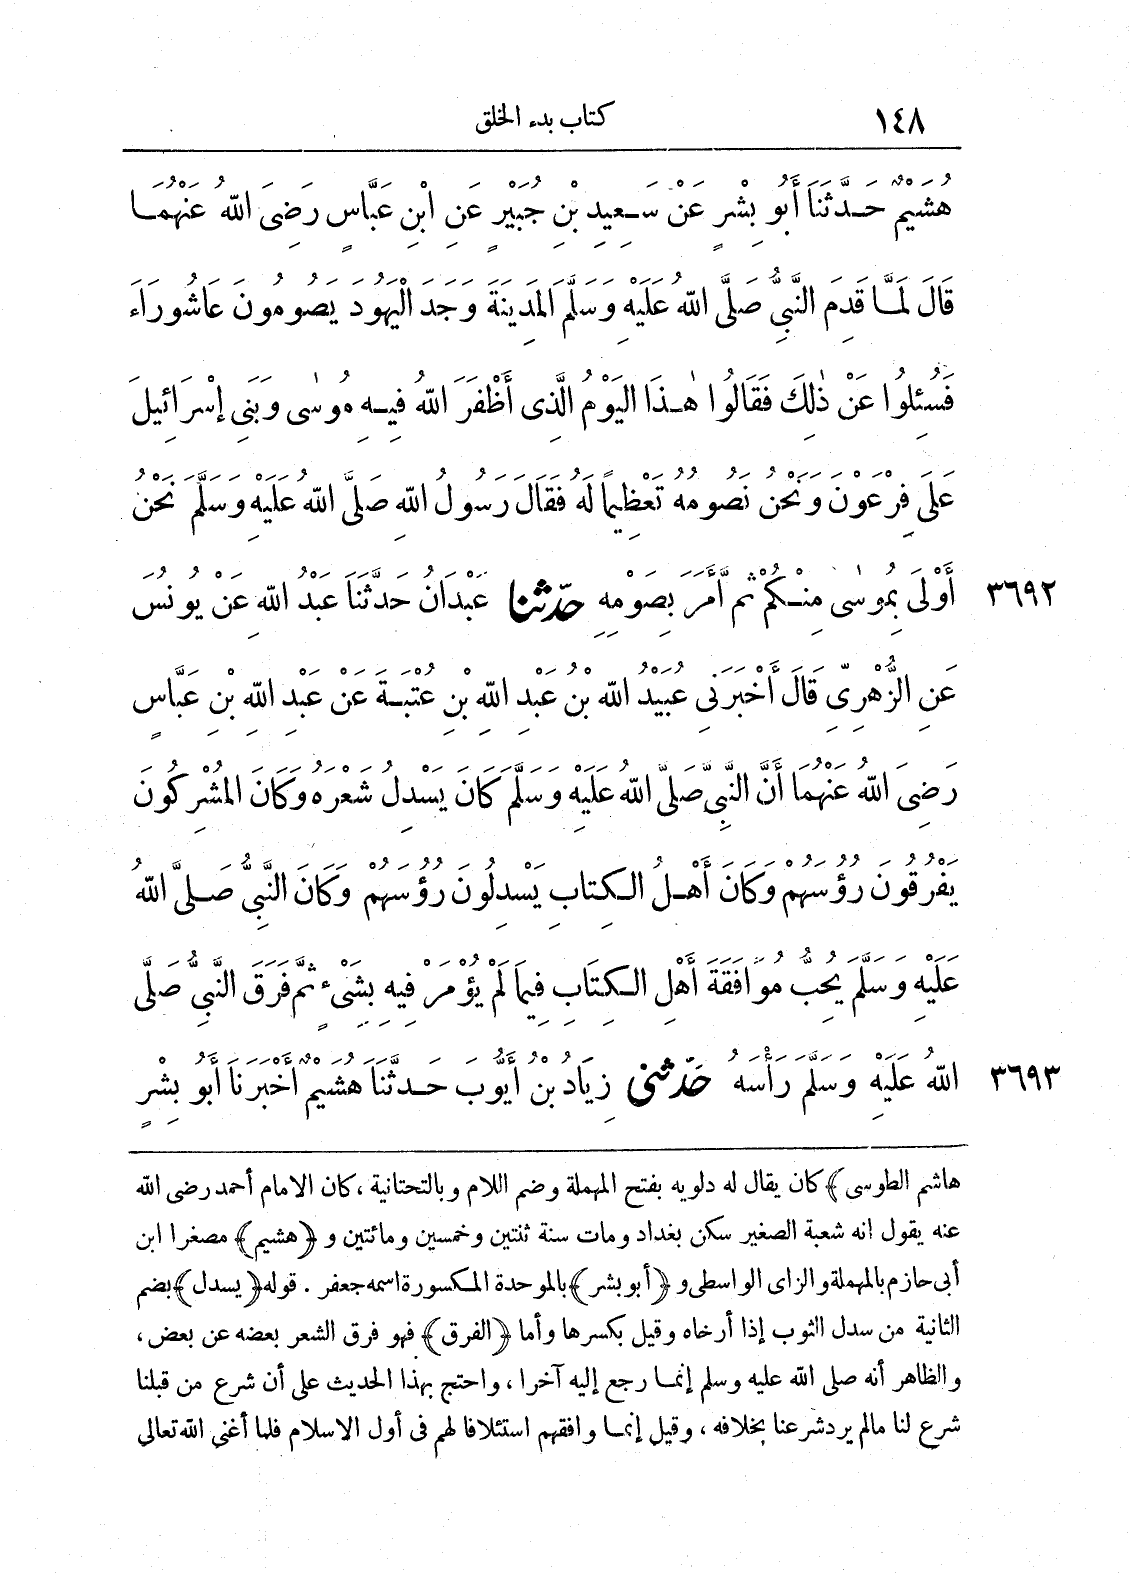 ١٤٨ كتاب بدء الخلق
هُشَيْمٌ حَدَّثَنَا أَبُو بِشْرٍ عَنْ سَعِيدِ بْنِ جُبَيْرٍ عَنِ ابْنِ عَبَّاسٍ رَضِىَ اللهُ عَنْهُمَا
قَالَ لَمَّا قَدِمَ النَّبِىُّ صَلَّى اللهُ عَلَيْهِ وَسَلَّمَ المَدِينَةَ وَجَدَ الْيَهُودَ يَصُومُونَ عَاشُورَاءَ
فَسُئِلُوا عَنْ ذٰلِكَ فَقَالُوا هٰذَا اليَوْمُ الَّذِى أَظْفَرَ اللهُ فِيهِ مُوسٰى وَبَنِى إِسْرَائِيلَ
عَلَى فِرْعَوْنَ وَنَحْنُ نَصُومُهُ تَعْظِيمًا لَهُ فَقَالَ رَسُولُ اللهِ صَلَّى اللهُ عَلَيْهِ وَسَلَّمَ نَحْنُ
٣٦٩٢ أَوْلَى بِمُوسٰى مِنْكُمْ ثُمَّ أَمَرَ بِصَوْمِهِ حَدَّثَنَا عَبْدَانُ حَدَّثَنَا عَبْدُ اللهِ عَنْ يُونُسَ
عَنِ الزُّهْرِىِّ قَالَ أَخْبَرَنِى عُبَيْدُ اللهِ بْنُ عَبْدِ اللهِ بْنِ عُتْبَةَ عَنْ عَبْدِ اللهِ بْنِ عَبَّاسٍ
رَضِىَ اللهُ عَنْهُمَا أَنَّ النَّبِىَّ صَلَّى اللهُ عَلَيْهِ وَسَلَّمَ كَانَ يَسْدِلُ شَعْرَهُ وَكَانَ المُشْرِكُونَ
يَفْرُقُونَ رُؤُسَهُمْ وَكَانَ أَهْلُ الكِتَابِ يَسْدِلُونَ رُؤُسَهُمْ وَكَانَ النَّبِىُّ صَلَّى اللهُ
عَلَيْهِ وَسَلَّمَ يُحِبُّ مُوَافَقَةَ أَهْلِ الكِتَابِ فِيمَا لَمْ يُؤْمَرْ فِيهِ بِشَىْءٍ ثُمَّ فَرَقَ النَّبِىُّ صَلَّى
٣٦٩٣ اللهُ عَلَيْهِ وَسَلَّمَ رَأْسَهُ حَدَّثَنِى زِيَادُ بْنُ أَيُّوبَ حَدَّثَنَا هُشَيْمٌ أَخْبَرَنَا أَبُو بِشْرٍ
هاشم الطوسى﴾ كان يقال له دلويه بفتح المهملة وضم اللام وبالتحتانية، كان الامام أحمد رضى الله
عنه يقول انه شعبة الصغير سكن بغداد ومات سنة ثنتين وخمسين ومائتين و ﴿هشيم﴾ مصغرا ابن
أبى حازم بالمهملة والزاى الواسطى و ﴿أبو بشر﴾ بالموحدة المكسورة اسمه جعفر. قوله ﴿يسدل﴾ بضم
الثانية من سدل الثوب إذا أرخاه وقيل بكسرها وأما ﴿الفرق﴾ فهو فرق الشعر بعضه عن بعض،
والظاهر أنه صلى الله عليه وسلم إنما رجع إليه آخرا، واحتج بهذا الحديث على أن شرع من قبلنا
شرع لنا مالم يرد شرعنا بخلافه، وقيل إنما وافقهم استئلافا لهم فى أول الاسلام فلما أغنى الله تعالى